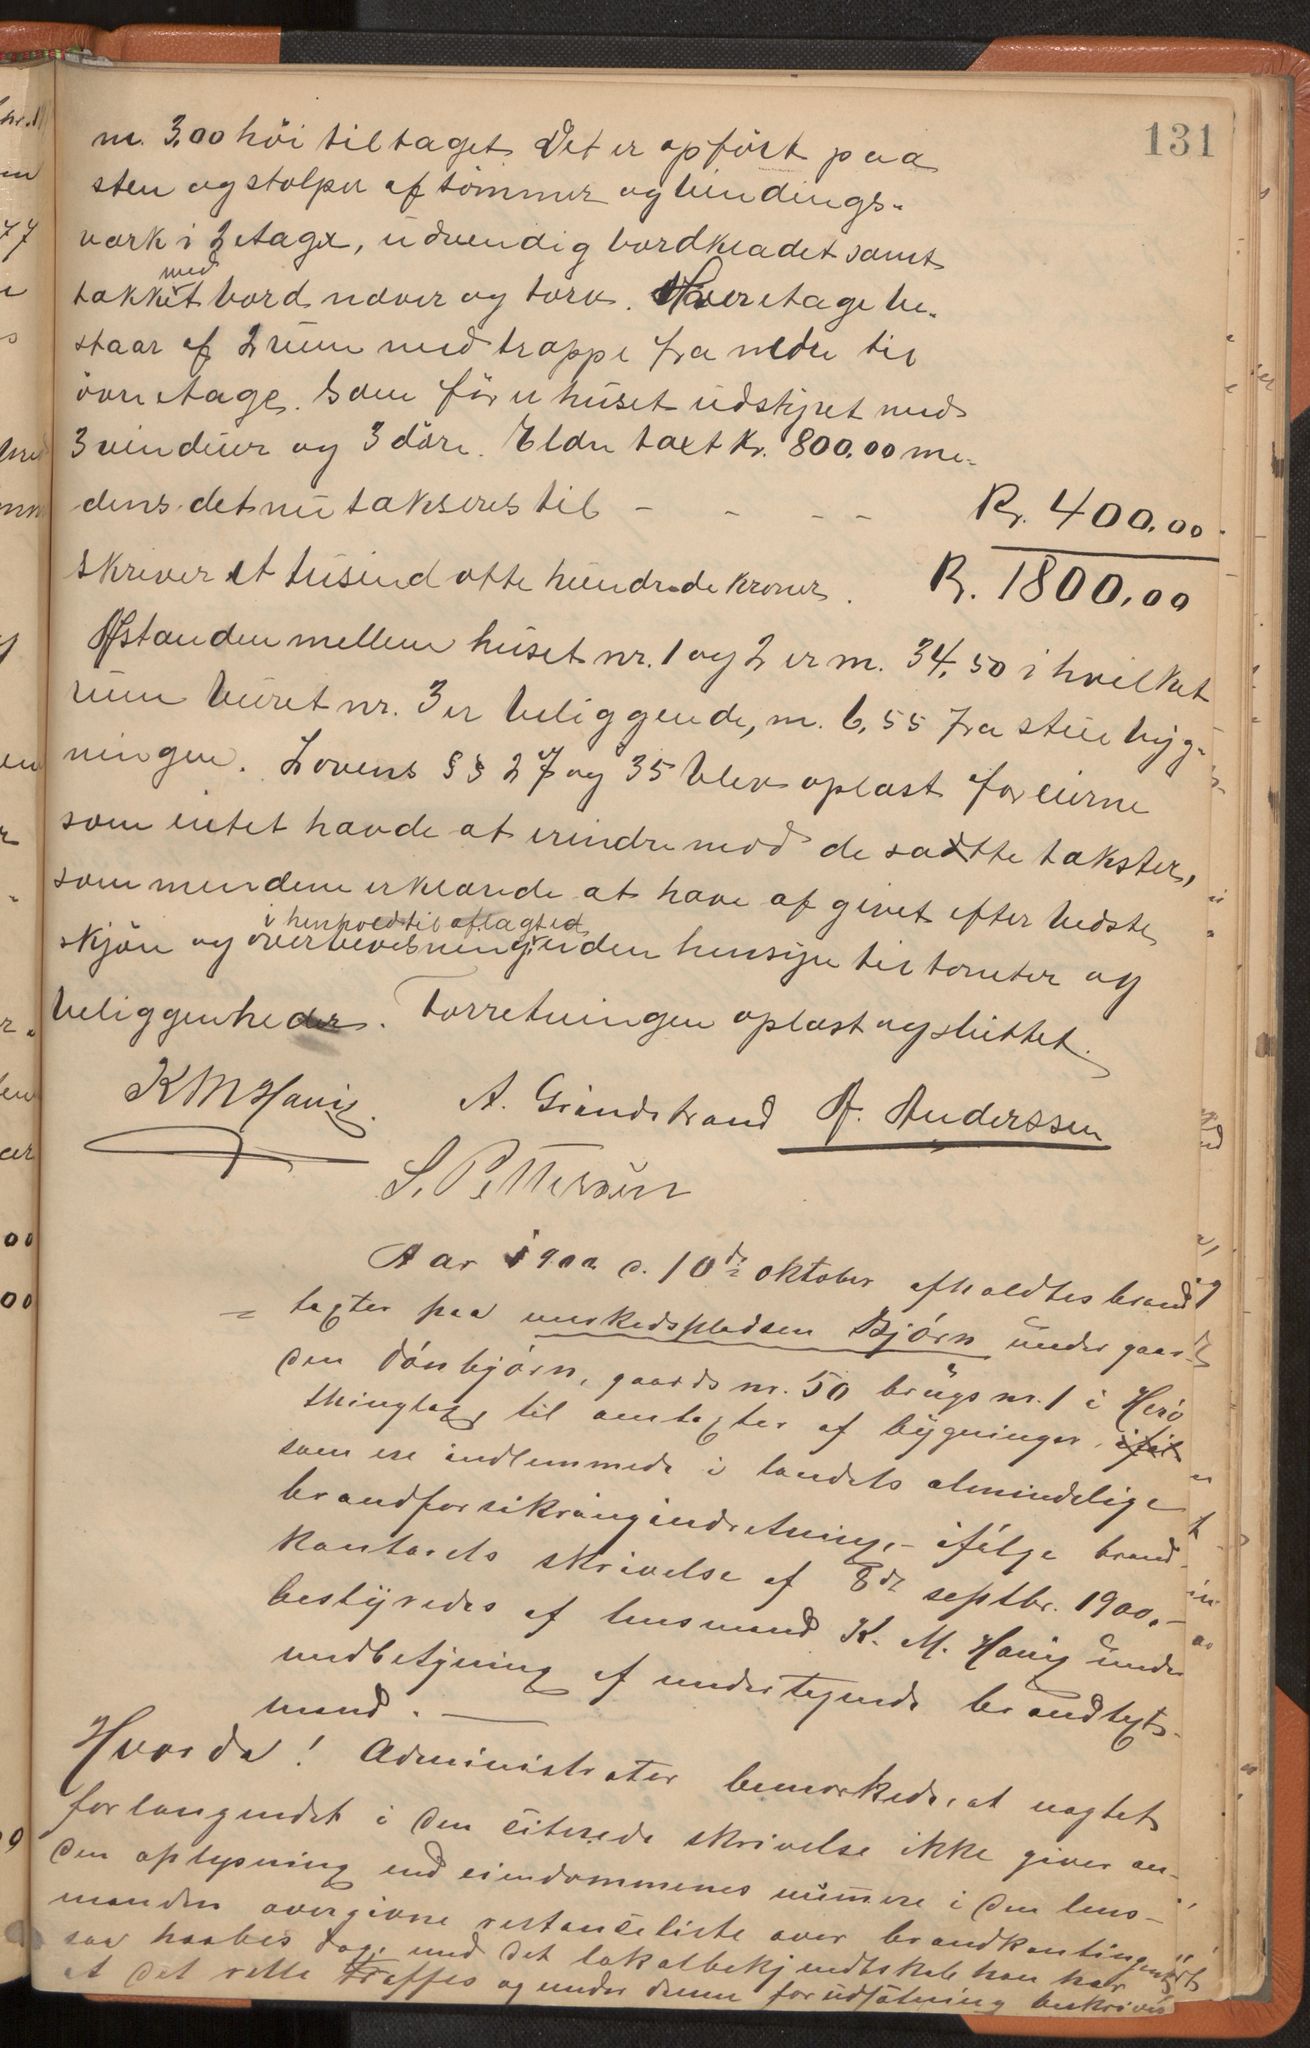 131
m. 3,00 höi til taget. Det er opført paa
sten og stolper af tømmer og bindings-
værk i 2 etager, udvendig bordklædet samt
tækket med bord næver og torv. Hver etage be-
staar af 2 rum med trappe fra nedre til
övre etage. Som før er huset udstyret med
3 vinduer og 3 döre. Eldre taxt Kr. 800,00 me-
dens det nu takseres til - - - - Kr. 400,00
skriver et tusind otte hundrede kroner. Kr. 1800,00
Afstanden mellem huset nr. 1 og 2 er m. 34,50 i hvilket
rum buret nr. 3 er beliggende, m. 6,55 fra stuebyg-
ningen. Lovens §§ 27 og 35 blev oplæst for eierne
som intet havde at erindre mod de satte takster,
som mændene erklærede at have afgivet efter bedste
i henhold til aflagt ed
skjøn og overbevisning uden hensyn til tomter og
beliggenheder. Forretningen oplæst og sluttet.
K M Havig A. Grindstrand A. Anderssen
S. Pettersen
Aar 1900 d. 10de oktober afholdtes brand
= taxter paa husmandspladsen Bjørn under gaar-
den Dönbjørn, gaards nr. 50 brugs nr. 1 i Herø
thinglag, til omtaxter af bygninger,
som ere indlemmede i landets almindelige
brandforsikringindretning, - ifølge brand-
kontorets skrivelse af 8de septbr. 1900. -
bestyredes af lensmand K. M. Havig under
medbetjening af undertegnede brandtaxt-
mænd. -
Hvorda! Administrator bemærkede, at uagtet
forlangendet i den citerede skrivelse ikke giver an-
den oplysning end eiendommenes numere i den lens-
manden overgivne restanceliste over brandkontingent
saa haabes dog, med det lokalbekjendtskab han har
at det rette træffes og under denne forudsætning beskrives